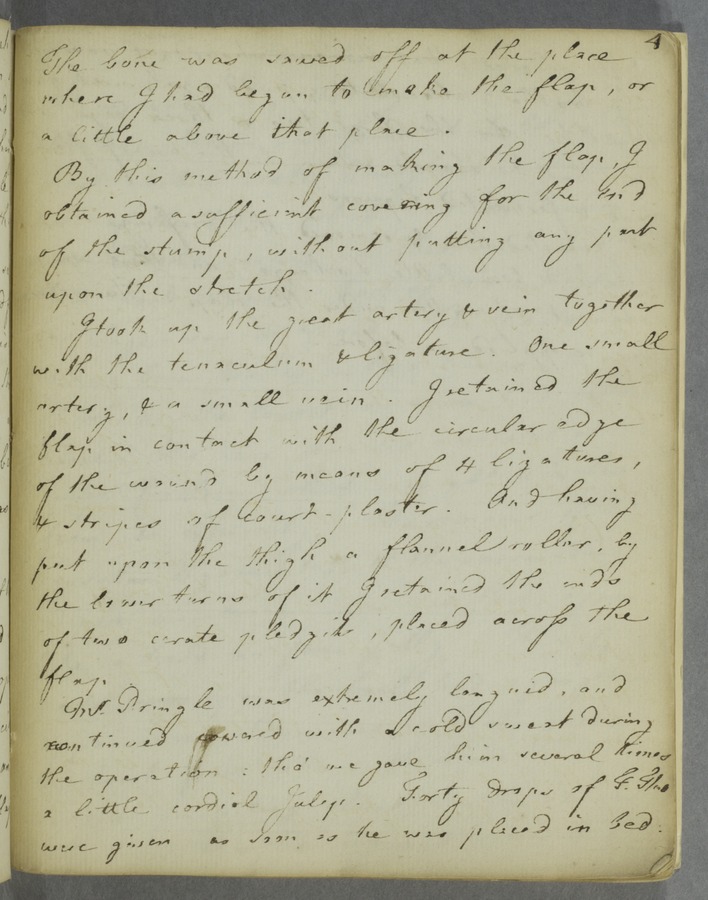 4
The bone was sawed off at the place
where I had begun to make the flap, or
a little above that place.
By this method of making the flap, I
obtained a sufficient covering for the end
of the stump, without putting any part
upon the stretch.
I took up the great artery & vein together
with the tenaculum & ligature. One small
artery, & a small vein. I retained the
flap in contact with the circular edge
of the wound by means of 4 ligatures,
& stripes of court-plaster. And having
put upon the thigh a flannel roller, by
the lower turns of it I retained the ends
of two cerate pledgits, placed across the
flap.
Mr. Pringle was extremely languid, and
continued covered with a cold sweat during
the operation: tho' we gave him several times
a little cordial Julep. Forty drops of
were given as soon as he was placed in bed.